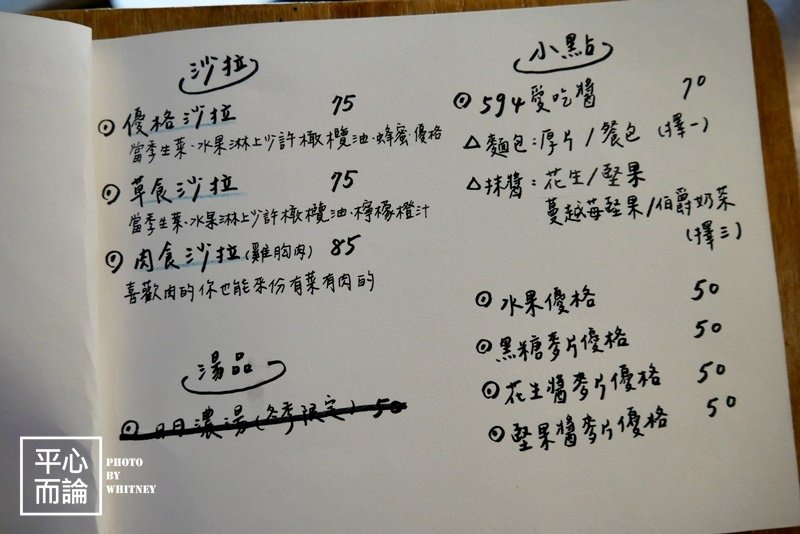 沙拉
◎ 優格沙拉 75
當季生菜、水果淋上少許橄欖油、蜂蜜、優格
◎ 草食沙拉 75
當季生菜、水果淋上少許橄欖油、檸檬橙汁
◎ 肉食沙拉(雞胸肉) 85
喜歡肉的你也能來份有菜有肉的
湯品
◎ 日日濃湯(冬季限定) 50
小點
◎ 594愛吃醬 70
△ 麵包:厚片/餐包 (擇一)
△ 抹醬:花生/堅果
蔓越莓堅果/伯爵奶茶
(擇三)
◎ 水果優格 50
◎ 黑糖麥片優格 50
◎ 花生醬麥片優格 50
◎ 堅果醬麥片優格 50
平心
而論
PHOTO
BY
WHITNEY